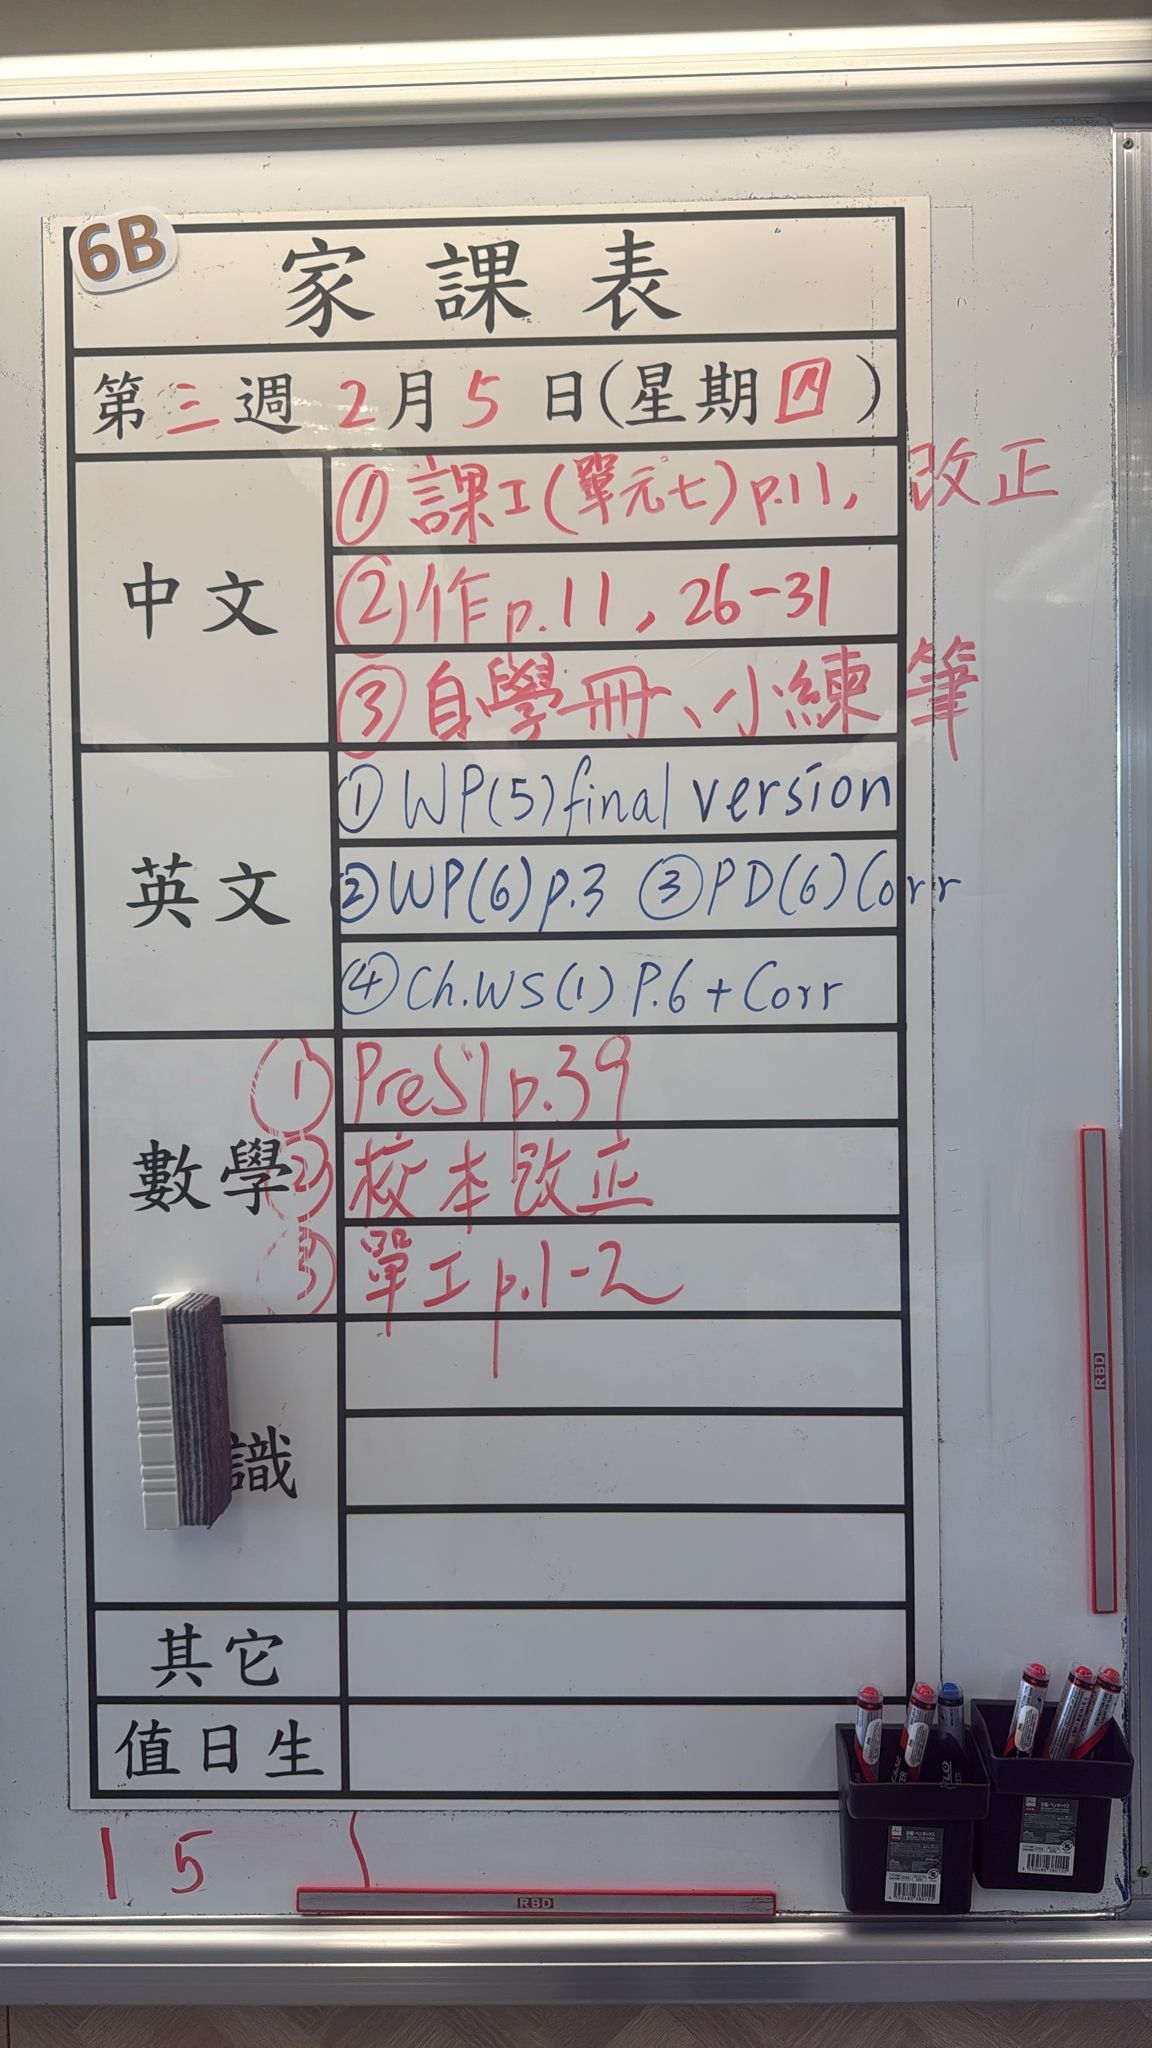 6B
家課表
第三週 2月5日(星期四)
中文
①課工(單元七)p.11, 改正
②作p.11, 26-31
③自學冊、小練筆
英文
①WP(5)final version
②WP(6)p.3 ③PD(6)Corr
④Ch.WS(1) P.6 + Corr
數學
①PreS1 p.39
②校本改正
③單工p.1-2
識
其它
值日生
15
RBD
RBD